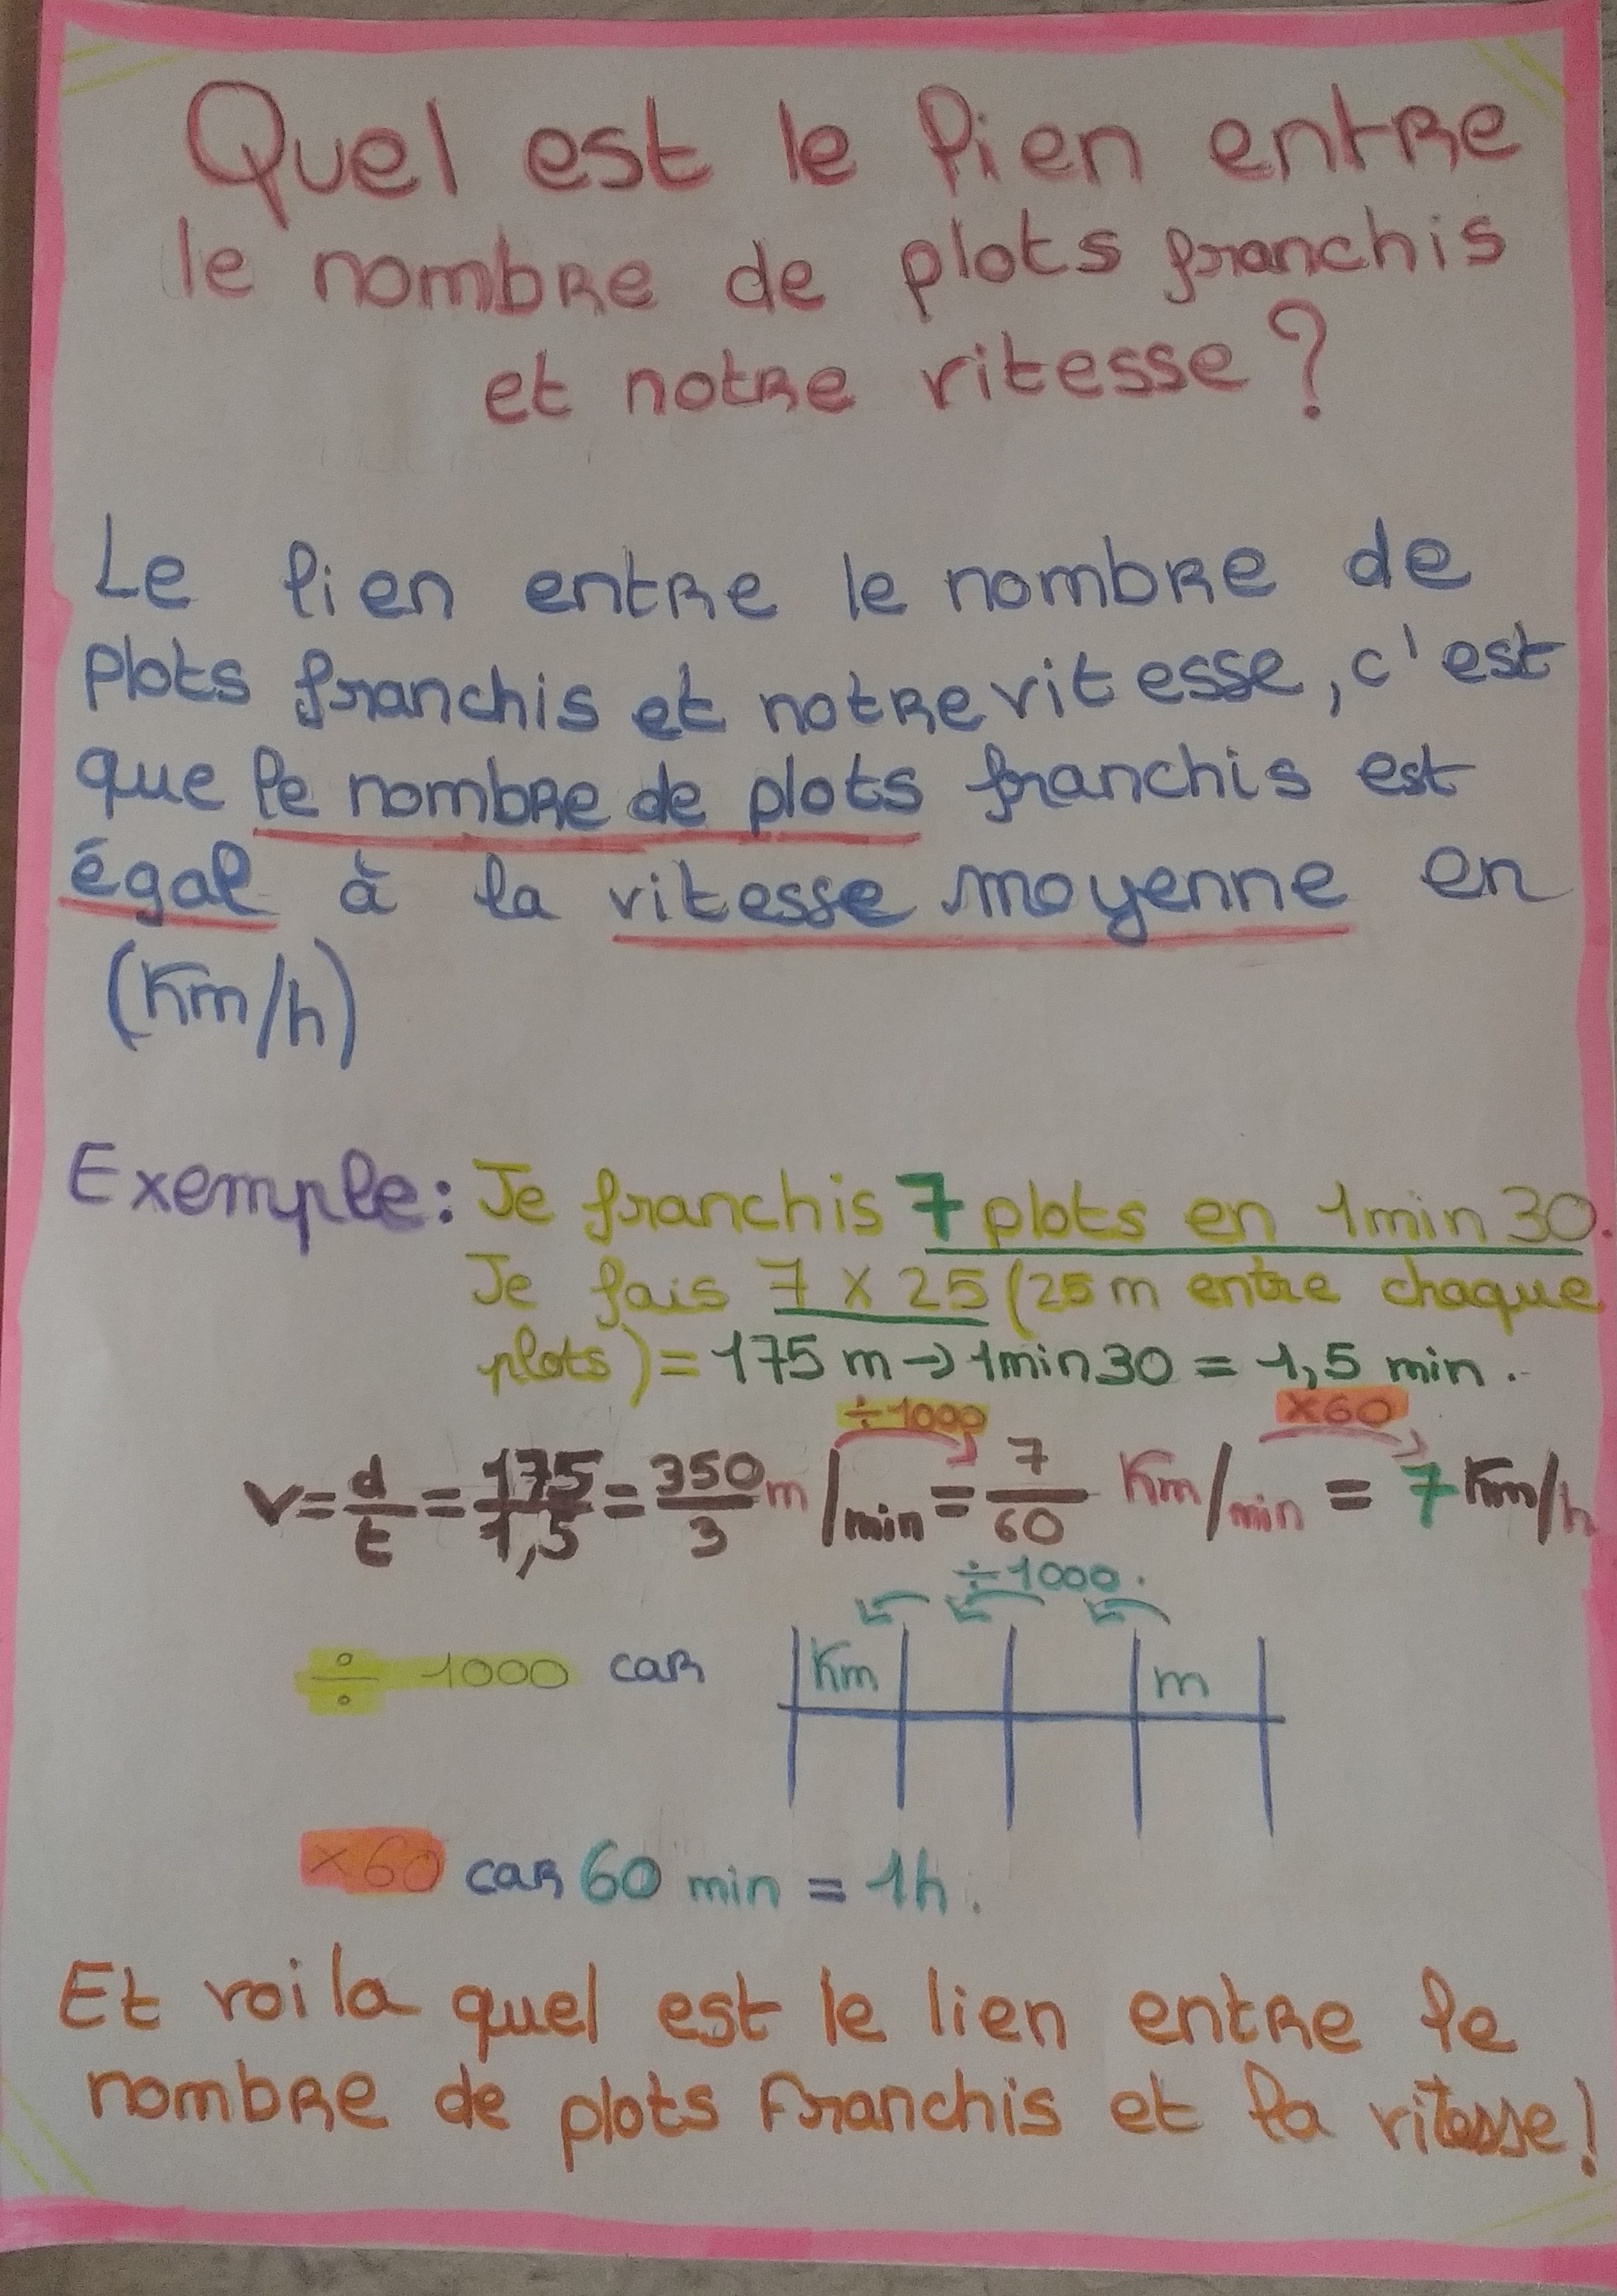 Quel est le lien entre
le nombre de plots franchis
et notre vitesse ?
Le lien entre le nombre de
plots franchis et notre vitesse, c'est
que le nombre de plots franchis est
égal à la vitesse moyenne en
(Km/h)
Exemple: Je franchis 7 plots en 1min 30.
Je fais 7 x 25 (25 m entre chaque
plots) = 175 m → 1min30 = 1,5 min.
÷1000 x60
v = d/t = 175/1,5 = 350/3 m/min = 7/60 Km/min = 7 Km/h
÷1000.
÷ 1000 car Km m
x60 car 60 min = 1h.
Et voila quel est le lien entre le
nombre de plots franchis et la vitesse!